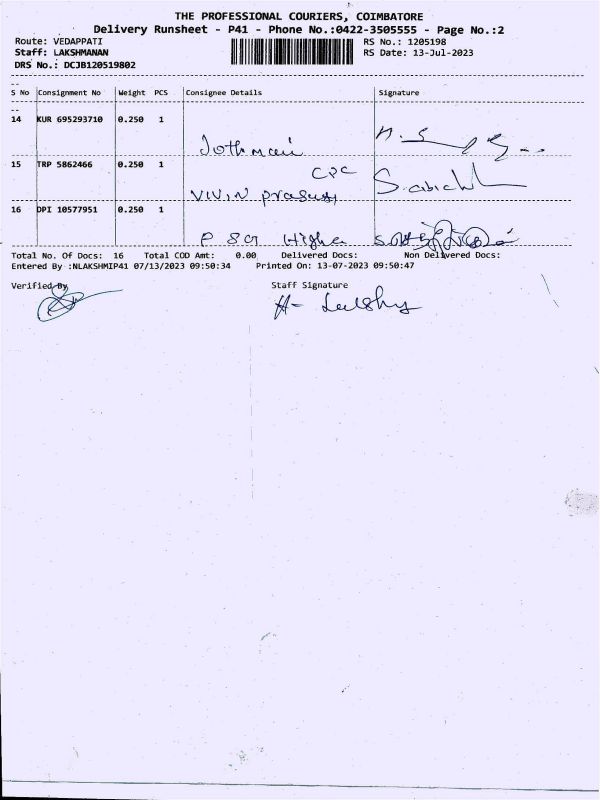 THE PROFESSIONAL COURIERS, COIMBATORE
Delivery Runsheet - P41 - Phone No.:0422-3505555 - Page No.:2
Route: VEDAPPATI RS No.: 1205198
Staff: LAKSHMANAN RS Date: 13-Jul-2023
DRS No.: DCJB120519802
S No Consignment No Weight PCS Consignee Details Signature
14 KUR 695293710 0.250 1
Jothmani
15 TRP 5862466 0.250 1
CPC
16 DPI 10577951 0.250 1
Total No. Of Docs: 16 Total COD Amt: 0.00 Delivered Docs: Non Delivered Docs:
Entered By :NLAKSHMIP41 07/13/2023 09:50:34 Printed On: 13-07-2023 09:50:47
Verified By Staff Signature